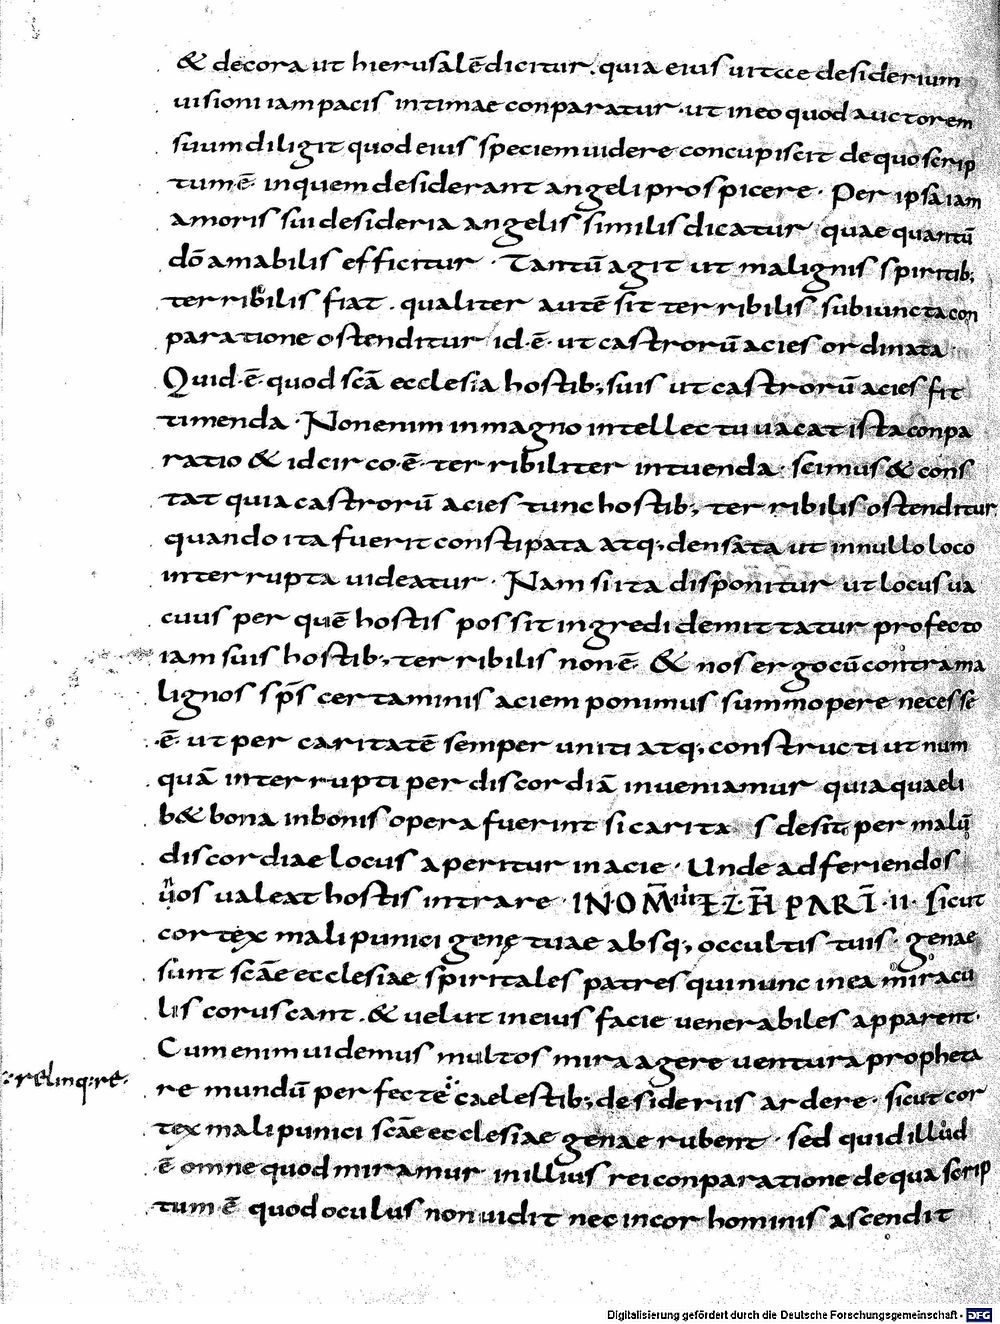 & decora ut hierusalē dicitur. quia eius uitae desiderium
uisioni iam pacis intimae conparatur. ut in eo quod auctorem
suum diligit quod eius speciem uidere concupiscit de quo scrip
tum ē. in quem desiderant angeli prospicere. Per ipsa iam
amoris sui desideria angelis similis dicatur quae quantū
dō amabilis efficitur. Tantū agit ut malignis spiritib;
terribilis fiat. qualiter autē sit terribilis subiuncta con
paratione ostenditur id.ē. ut castrorū acies ordinata.
Quid.ē. quod scā ecclesia hostib; suis ut castrorū acies fit
timenda. Non enim in magno intellectu uacat ista conpa
ratio & idcirco.ē. terribiliter intuenda. scimus & cons
tat quia castrorū acies tunc hostib; terribilis ostenditur
quando ita fuerit constipata atq; densata ut in nullo loco
interrupta uideatur. Nam si ita disponitur ut locus ua
cuus per quē hostis possit ingredi demittatur profecto
iam suis hostib; terribilis non ē. & nos ergo cū contra ma
lignos sp̄s certaminis aciem ponimus summopere necesse
.ē. ut per caritatē semper uniti atq; constructi ut num
quā interrupti per discordiā inueniamur quia quaeli
b& bona in bonis opera fuerint si carita s desit. per malū
discordiae locus aperitur in acie. Unde ad feriendos
nos ualeat hostis intrare. IN OM̄ IIII EZ H̄ PART̄. II. Sicut
cortex mali punici genę tuae absq; occultis tuis. genae
sunt scāe ecclesiae spiritales patres qui nunc in ea miracu
lis coruscant. & uelut in eius facie uenerabiles apparent.
Cum enim uidemus multos mira agere uentura propheta
relinq:re.
re mundū perfectē caelestib; desideriis ardere. sicut cor
tex mali punici scāe ecclesiae genae rubent. sed quid illud
ē omne quod miramur in illius rei conparatione de qua scrip
tum ē quod oculus non uidit nec in cor hominis ascendit
Digitalisierung gefördert durch die Deutsche Forschungsgemeinschaft - DFG